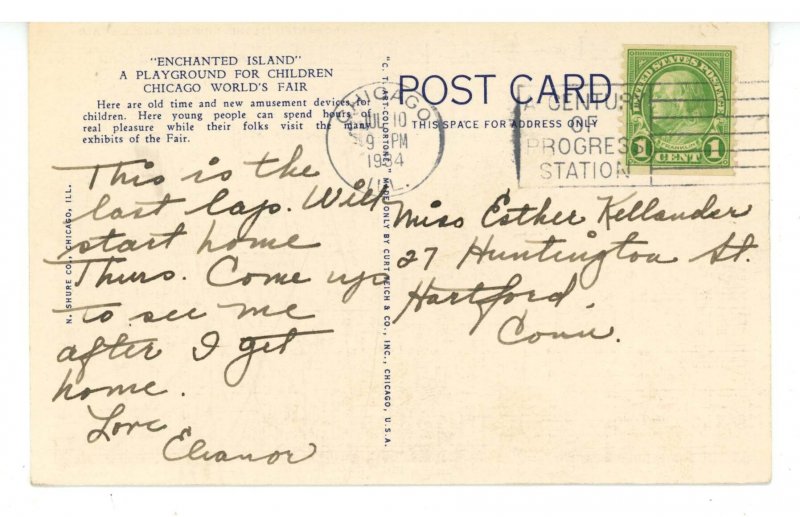 "ENCHANTED ISLAND"
A PLAYGROUND FOR CHILDREN
CHICAGO WORLD'S FAIR
Here are old time and new amusement devices for
children. Here young people can spend hours of
real pleasure while their folks visit the many
exhibits of the Fair.
This is the
last lap. Will
start home
Thurs. Come up
to see me
after I get
home.
Love
Eleanor
N. SHURE CO., CHICAGO, ILL.
"C. T. ART-COLORTONE" MADE ONLY BY CURT TEICH & CO., INC., CHICAGO, U.S.A.
POST CARD
THIS SPACE FOR ADDRESS ONLY
CHICAGO
JUL 10
9 PM
1934
ILL.
A CENTURY
OF
PROGRESS
STATION
UNITED STATES POSTAGE
FRANKLIN
1 CENT 1
Miss Esther Kellander
27 Huntington St.
Hartford,
Conn.